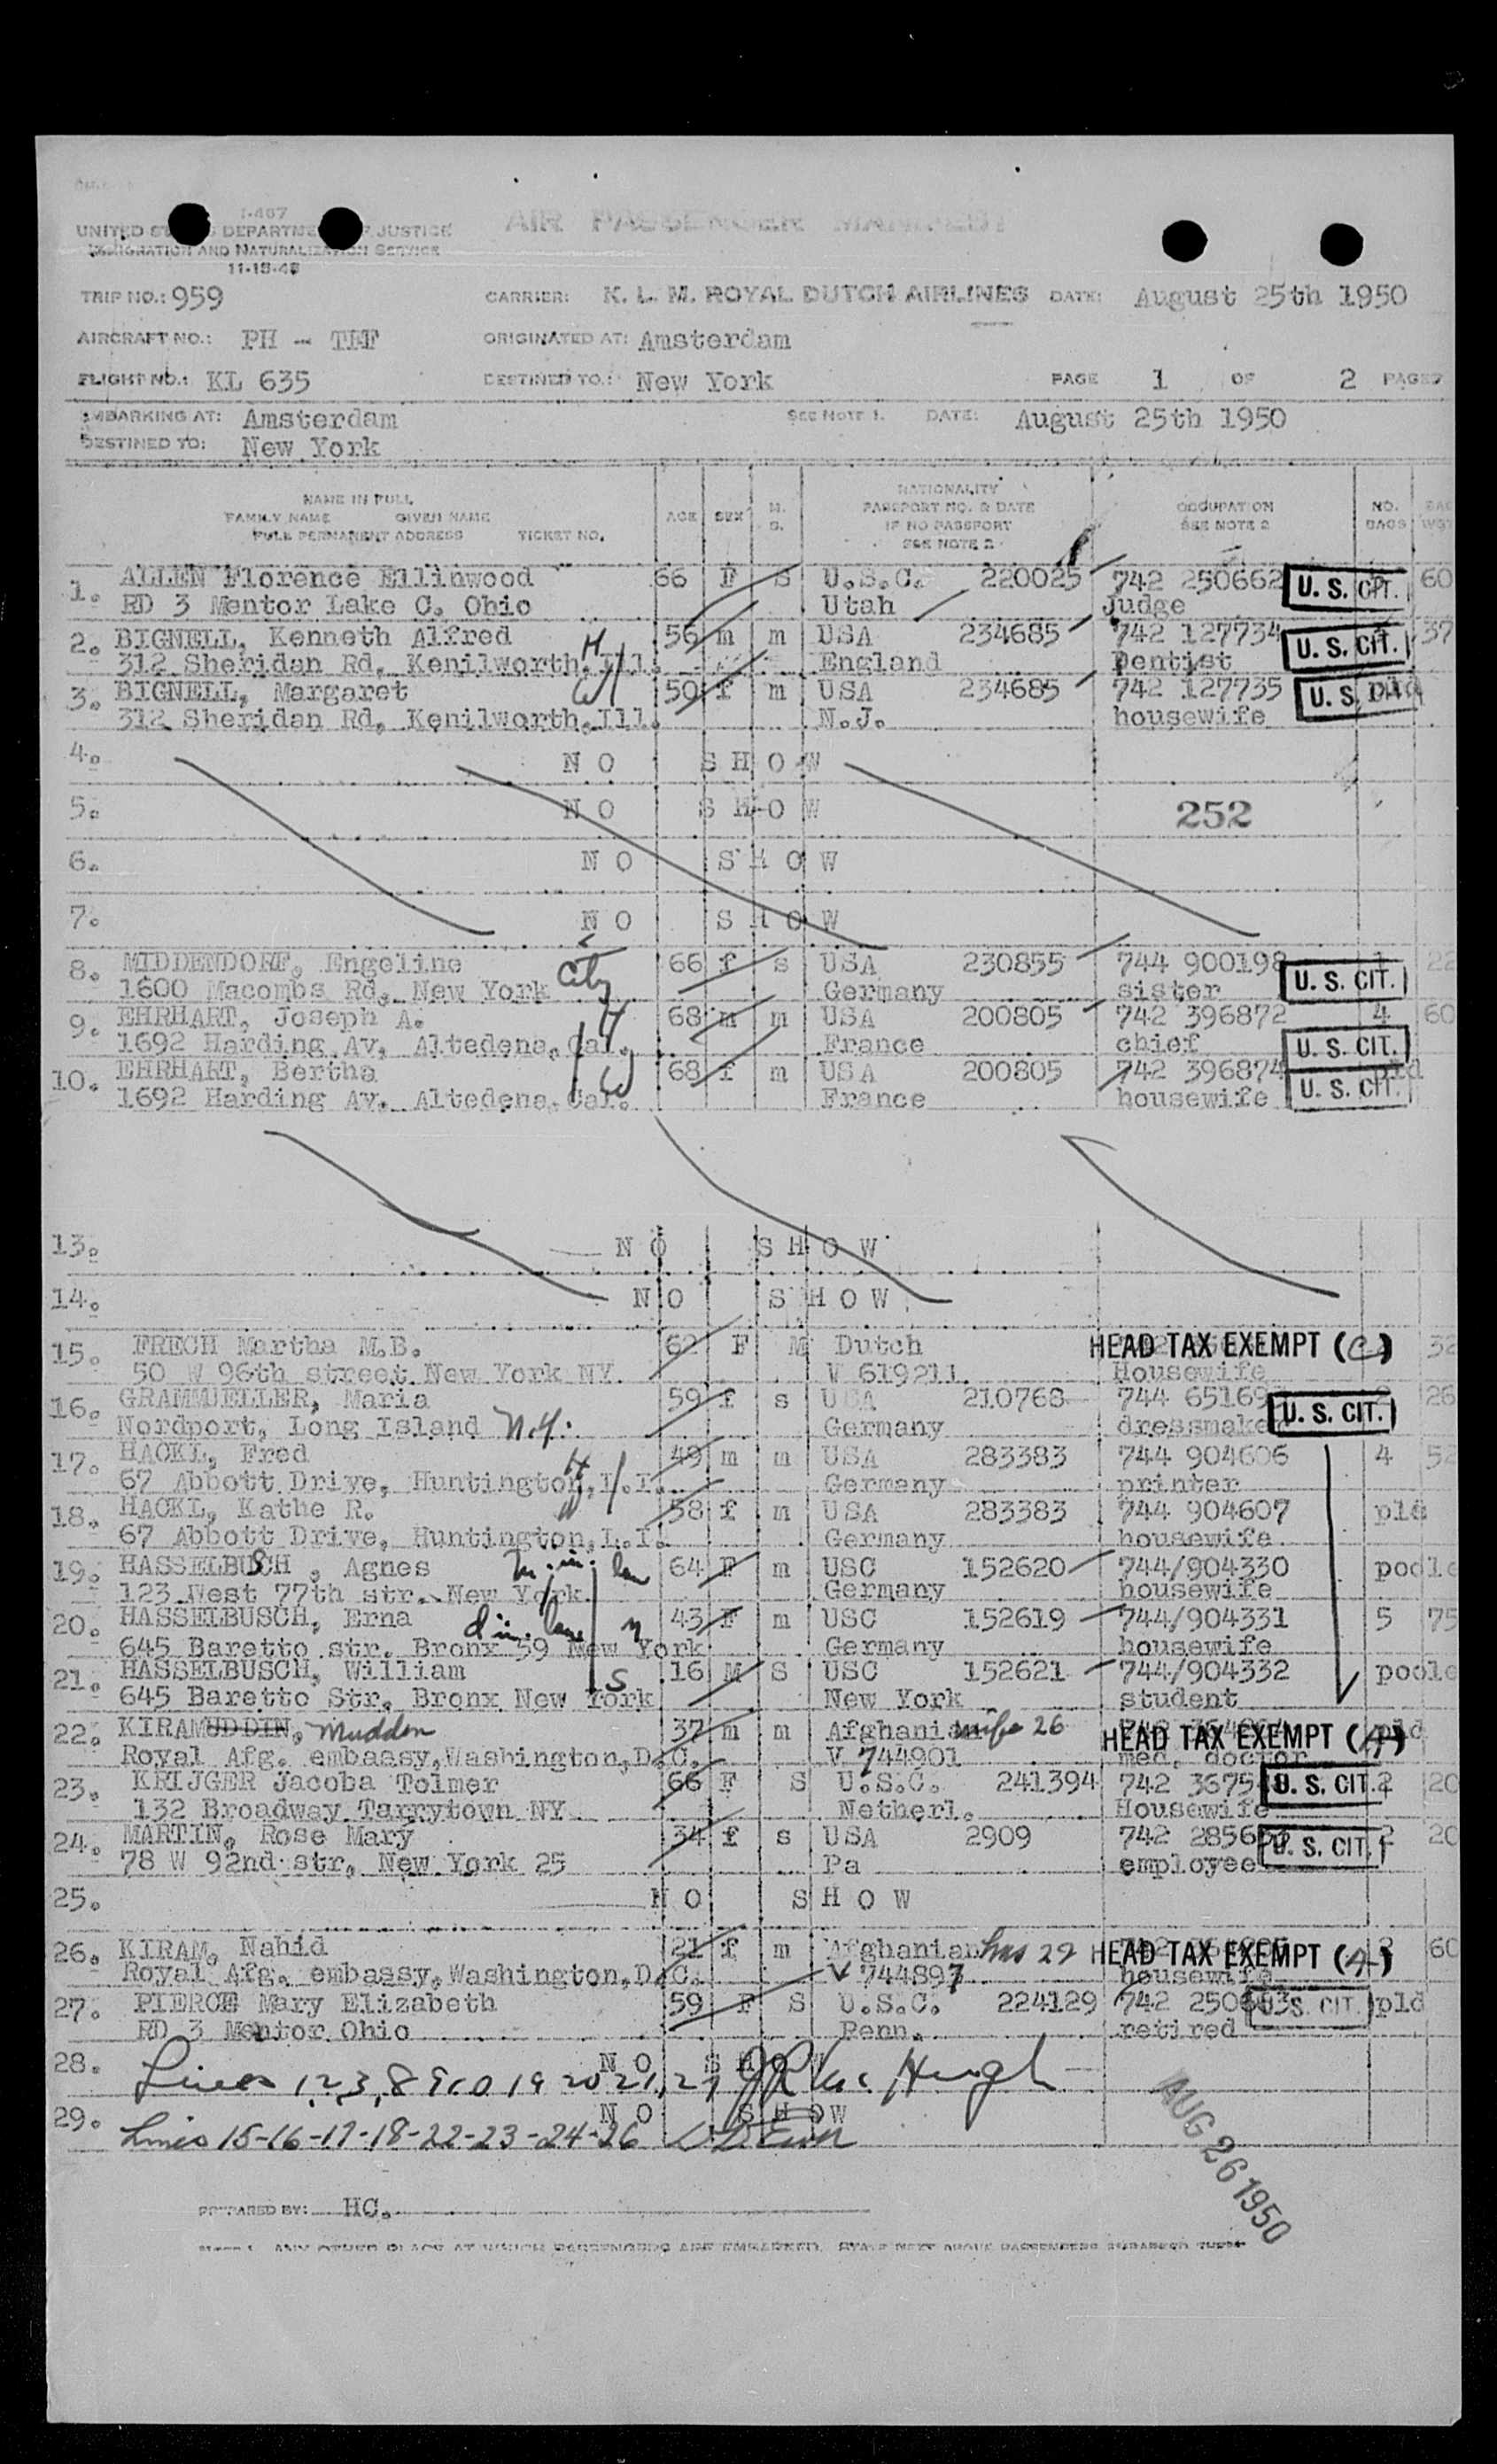 I-467
AIR PASSENGER MANIFEST
UNITED STATES DEPARTMENT OF JUSTICE
IMMIGRATION AND NATURALIZATION SERVICE
11-18-48
TRIP NO.: 959 CARRIER: K. L. M. ROYAL DUTCH AIRLINES DATE: August 25th 1950
AIRCRAFT NO.: PH - ORIGINATED AT: Amsterdam
FLIGHT NO.: KL 635 DESTINED TO: New York PAGE 1 OF 2 PAGES
EMBARKING AT: Amsterdam SEE NOTE 1. DATE: August 25th 1950
DESTINED TO: New York
NAME IN FULL
FAMILY NAME GIVEN NAME
FULL PERMANENT ADDRESS TICKET NO. AGE SEX M. S. NATIONALITY PASSPORT NO. & DATE IF NO PASSPORT SEE NOTE 2 OCCUPATION SEE NOTE 2 NO. BAGS BAG WGT
1. ALLEN Florence Ellinwood 66 F S U.S.C. 220025 742 250662 U. S. CIT. 60
RD 3 Mentor Lake C. Ohio Utah Judge
2. BIGNELL, Kenneth Alfred H 56 m m USA 234685 742 127734 U. S. CIT. 37
312 Sheridan Rd, Kenilworth, Ill. England Dentist
3. BIGNELL, Margaret W 50 f m USA 234685 742 127735 U. S. pld
312 Sheridan Rd, Kenilworth, Ill. N.J. housewife
4. NO SHOW
5. NO SHOW 252
6. NO SHOW
7. NO SHOW
8. MIDDENDORF, Engeline City 66 f s USA 230855 744 900198 1 22
1600 Macombs Rd, New York Germany sister U. S. CIT.
9. EHRHART, Joseph A. H 68 m m USA 200805 742 396872 4 60
1692 Harding Av, Altedena, Cal. France chief U. S. CIT.
10. EHRHART, Bertha W 68 f m USA 200805 742 396874 pld
1692 Harding Av, Altedena, Cal. France housewife U. S. CIT.
13. NO SHOW
14. NO SHOW
15. FRECH Martha M.B. 62 F M Dutch HEAD TAX EXEMPT (C) 32
50 W 96th street New York NY. V 619211 Housewife
16. GRAMMUELLER, Maria 59 f s USA 210768 744 65169 2 26
Nordport, Long Island N.Y. Germany dressmaker U. S. CIT.
17. HACKL, Fred 49 m m USA 283383 744 904606 4 52
67 Abbott Drive, Huntington, L.I. H Germany printer
18. HACKL, Kathe R. W 58 f m USA 283383 744 904607 pld
67 Abbott Drive, Huntington, L.I. Germany housewife
19. HASSELBUSCH , Agnes m. in. law 64 F m USC 152620 744/904330 poole
123 West 77th str. New York Germany housewife
20. HASSELBUSCH, Erna d in. law 43 F m USC 152619 744/904331 5 75
645 Baretto str. Bronx 59 New York Germany housewife
21. HASSELBUSCH, William S 16 M S USC 152621 744/904332 poole
645 Baretto Str. Bronx New York New York student
22. KIRAMUDDIN, Muddin 37 m m Afghani wife 26 HEAD TAX EXEMPT (A) pld
Royal Afg. embassy, Washington, D.C. V 744901 med. doctor
23. KRIJGER Jacoba Tolmer 66 F S U.S.C. 241394 742 3675 U. S. CIT. 2 20
132 Broadway Tarrytown NY Netherl. Housewife
24. MARTIN, Rose Mary 34 f s USA 2909 742 2856 U. S. CIT. 2 20
78 W 92nd str, New York 25 Pa employee
25. NO SHOW
26. KIRAM, Nahid 21 f m Afghanian hus 22 HEAD TAX EXEMPT (A) 60
Royal Afg. embassy, Washington, D.C. V 744897 housewife
27. PIERCE Mary Elizabeth 59 F S U.S.C. 224129 742 250663 U. S. CIT. pld
RD 3 Mentor Ohio Penn. retired
28. NO SHOW
Lines 1,2,3,8 9 10 19 20 21, 27
29. NO SHOW
Lines 15-16-17-18-22-23-24-26
AUG 26 1950
PREPARED BY: HC.
NOTE 1. ANY OTHER PLACE AT WHICH PASSENGERS ARE EMBARKED, STATE NEXT ABOVE PASSENGERS EMBARKED THERE